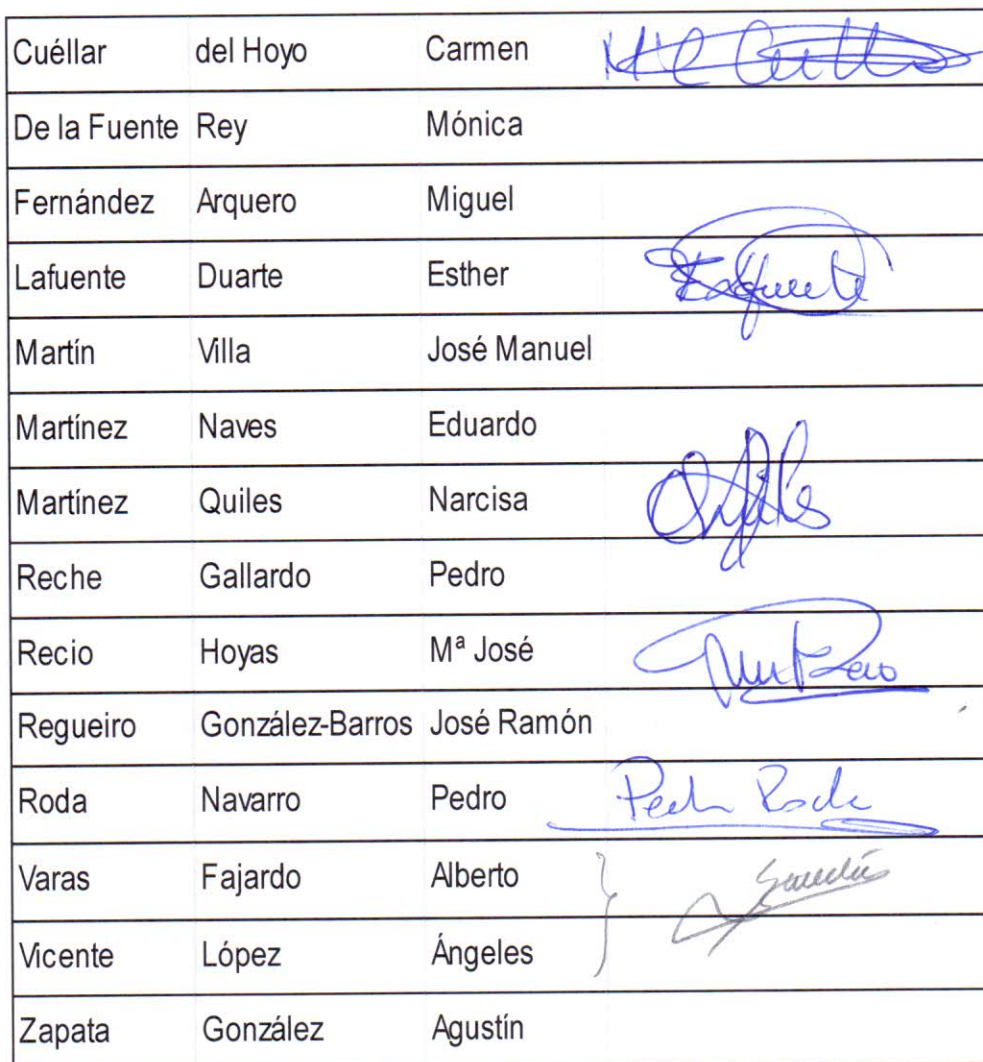 Cuéllar del Hoyo Carmen
De la Fuente Rey Mónica
Fernández Arquero Miguel
Lafuente Duarte Esther Lafuente
Martín Villa José Manuel
Martínez Naves Eduardo
Martínez Quiles Narcisa
Reche Gallardo Pedro
Recio Hoyas Mª José
Regueiro González-Barros José Ramón
Roda Navarro Pedro Pedro Roda
Varas Fajardo Alberto
Vicente López Ángeles
Zapata González Agustín